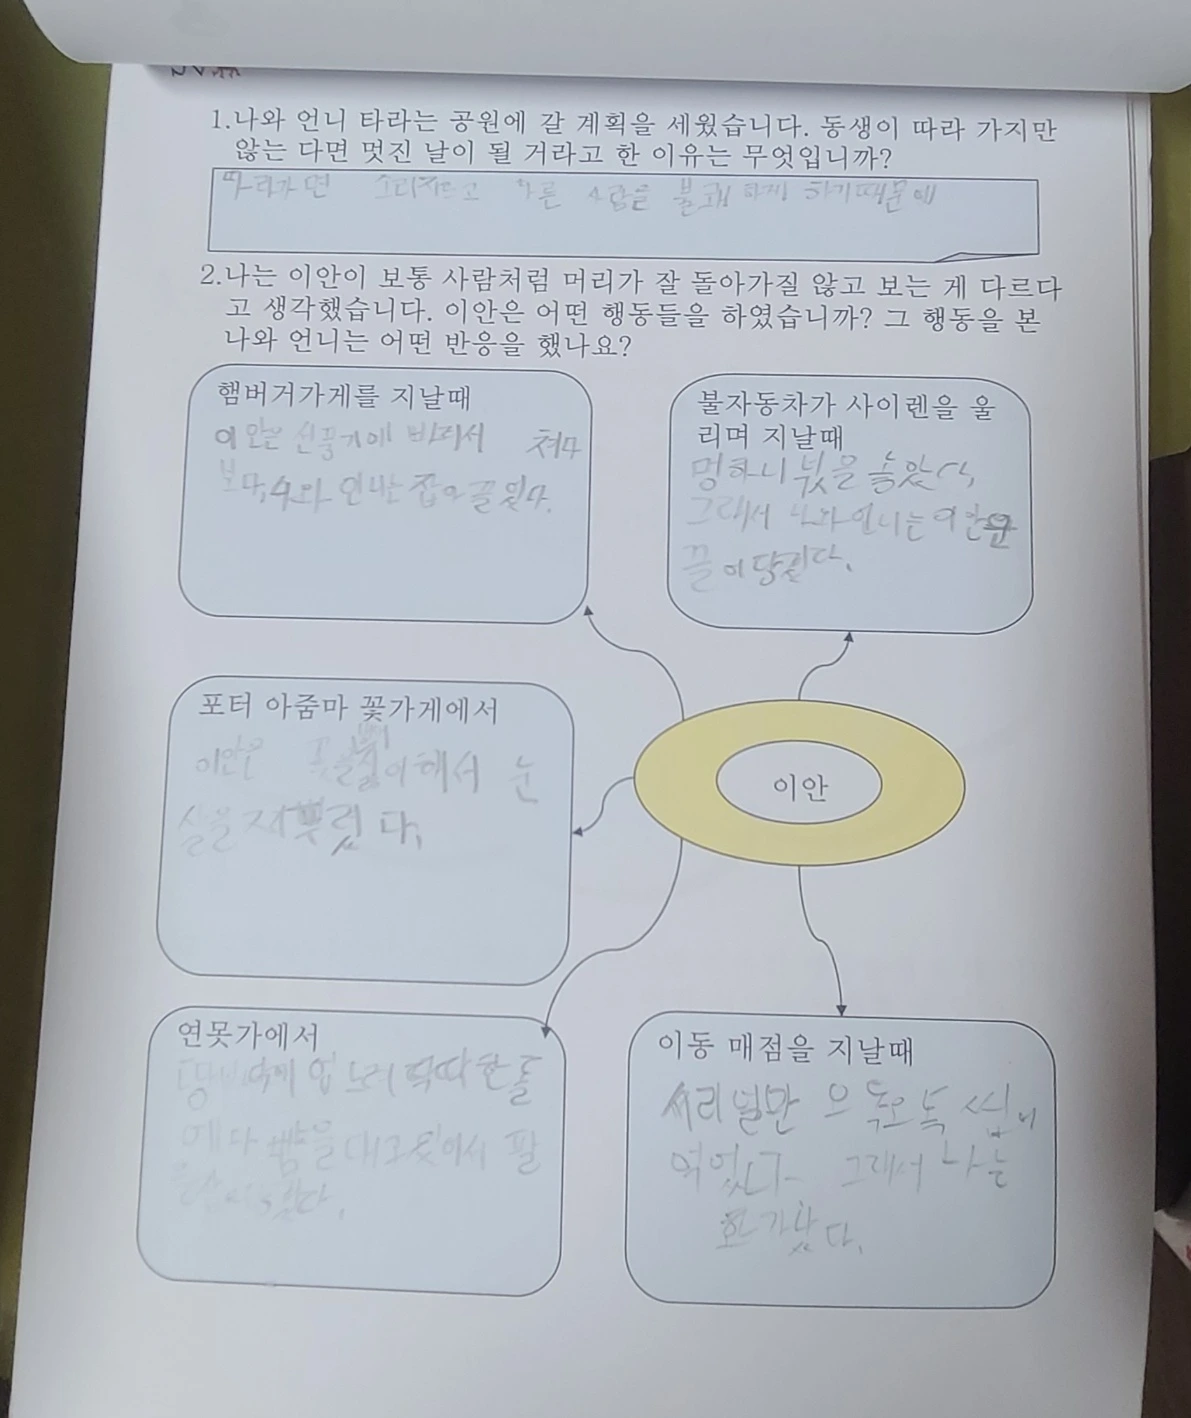 1.나와 언니 타라는 공원에 갈 계획을 세웠습니다. 동생이 따라 가지만
않는 다면 멋진 날이 될 거라고 한 이유는 무엇입니까?
따라가면 소리지르고 다른 사람을 불쾌 하게 하기때문에
2.나는 이안이 보통 사람처럼 머리가 잘 돌아가질 않고 보는 게 다르다
고 생각했습니다. 이안은 어떤 행동들을 하였습니까? 그 행동을 본
나와 언니는 어떤 반응을 했나요?
햄버거가게를 지날때
이안은 선풍기에 서 쳐다
보다, 나와 언니는 잡아끌었다.
불자동차가 사이렌을 울
리며 지날때
멍하니 넋을 놓았다,
그래서 나와 언니는 이안을
끌어당겼다.
포터 아줌마 꽃가게에서
이안은 해서 눈
살을 찌뿌렸다,
이안
연못가에서
땅바닥에 엎드려 딱딱한돌
에다 뺨을 대고 있어서
이동 매점을 지날때
시리얼만 으득오득 씹어
먹었다 그래서 나는
화가났다.